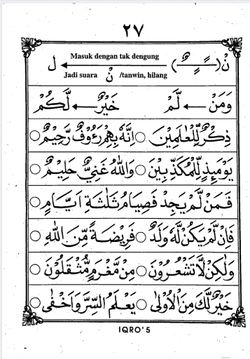 ٢٧
نْ (ــًــٍــٌ) ← ل
Masuk dengan tak dengung
Jadi suara نْ /tanwin, hilang
وَمَنْ ← لَّمْ خَيْرٌ ← لَّكُمْ
ذِكْرٌ لِّلْعَالَمِيْنَ ○ اِنَّهُ بِهِمْ رَءُوْفٌ رَّحِيْمٌ ○
يَوْمَئِذٍ لِّلْمُكَذِّبِيْنَ ○ وَاللهُ غَنِيٌّ حَلِيْمٌ ○
فَمَنْ لَّمْ يَجِدْ فَصِيَامُ ثَلٰثَةِ اَيَّامٍ ○
فَاِنْ لَّمْ يَكُنْ لَّهُ وَلَدٌ ○ فَرِيْضَةً مِّنَ اللهِ ○
وَلٰكِنْ لَّا تَشْعُرُوْنَ ○ مِنْ مَّغْرَمٍ مُّثْقَلُوْنَ ○
خَيْرٌ لَّكَ مِنَ الْاُوْلٰى ○ يَعْلَمُ السِّرَّ وَاَخْفٰى ○
IQRO'5